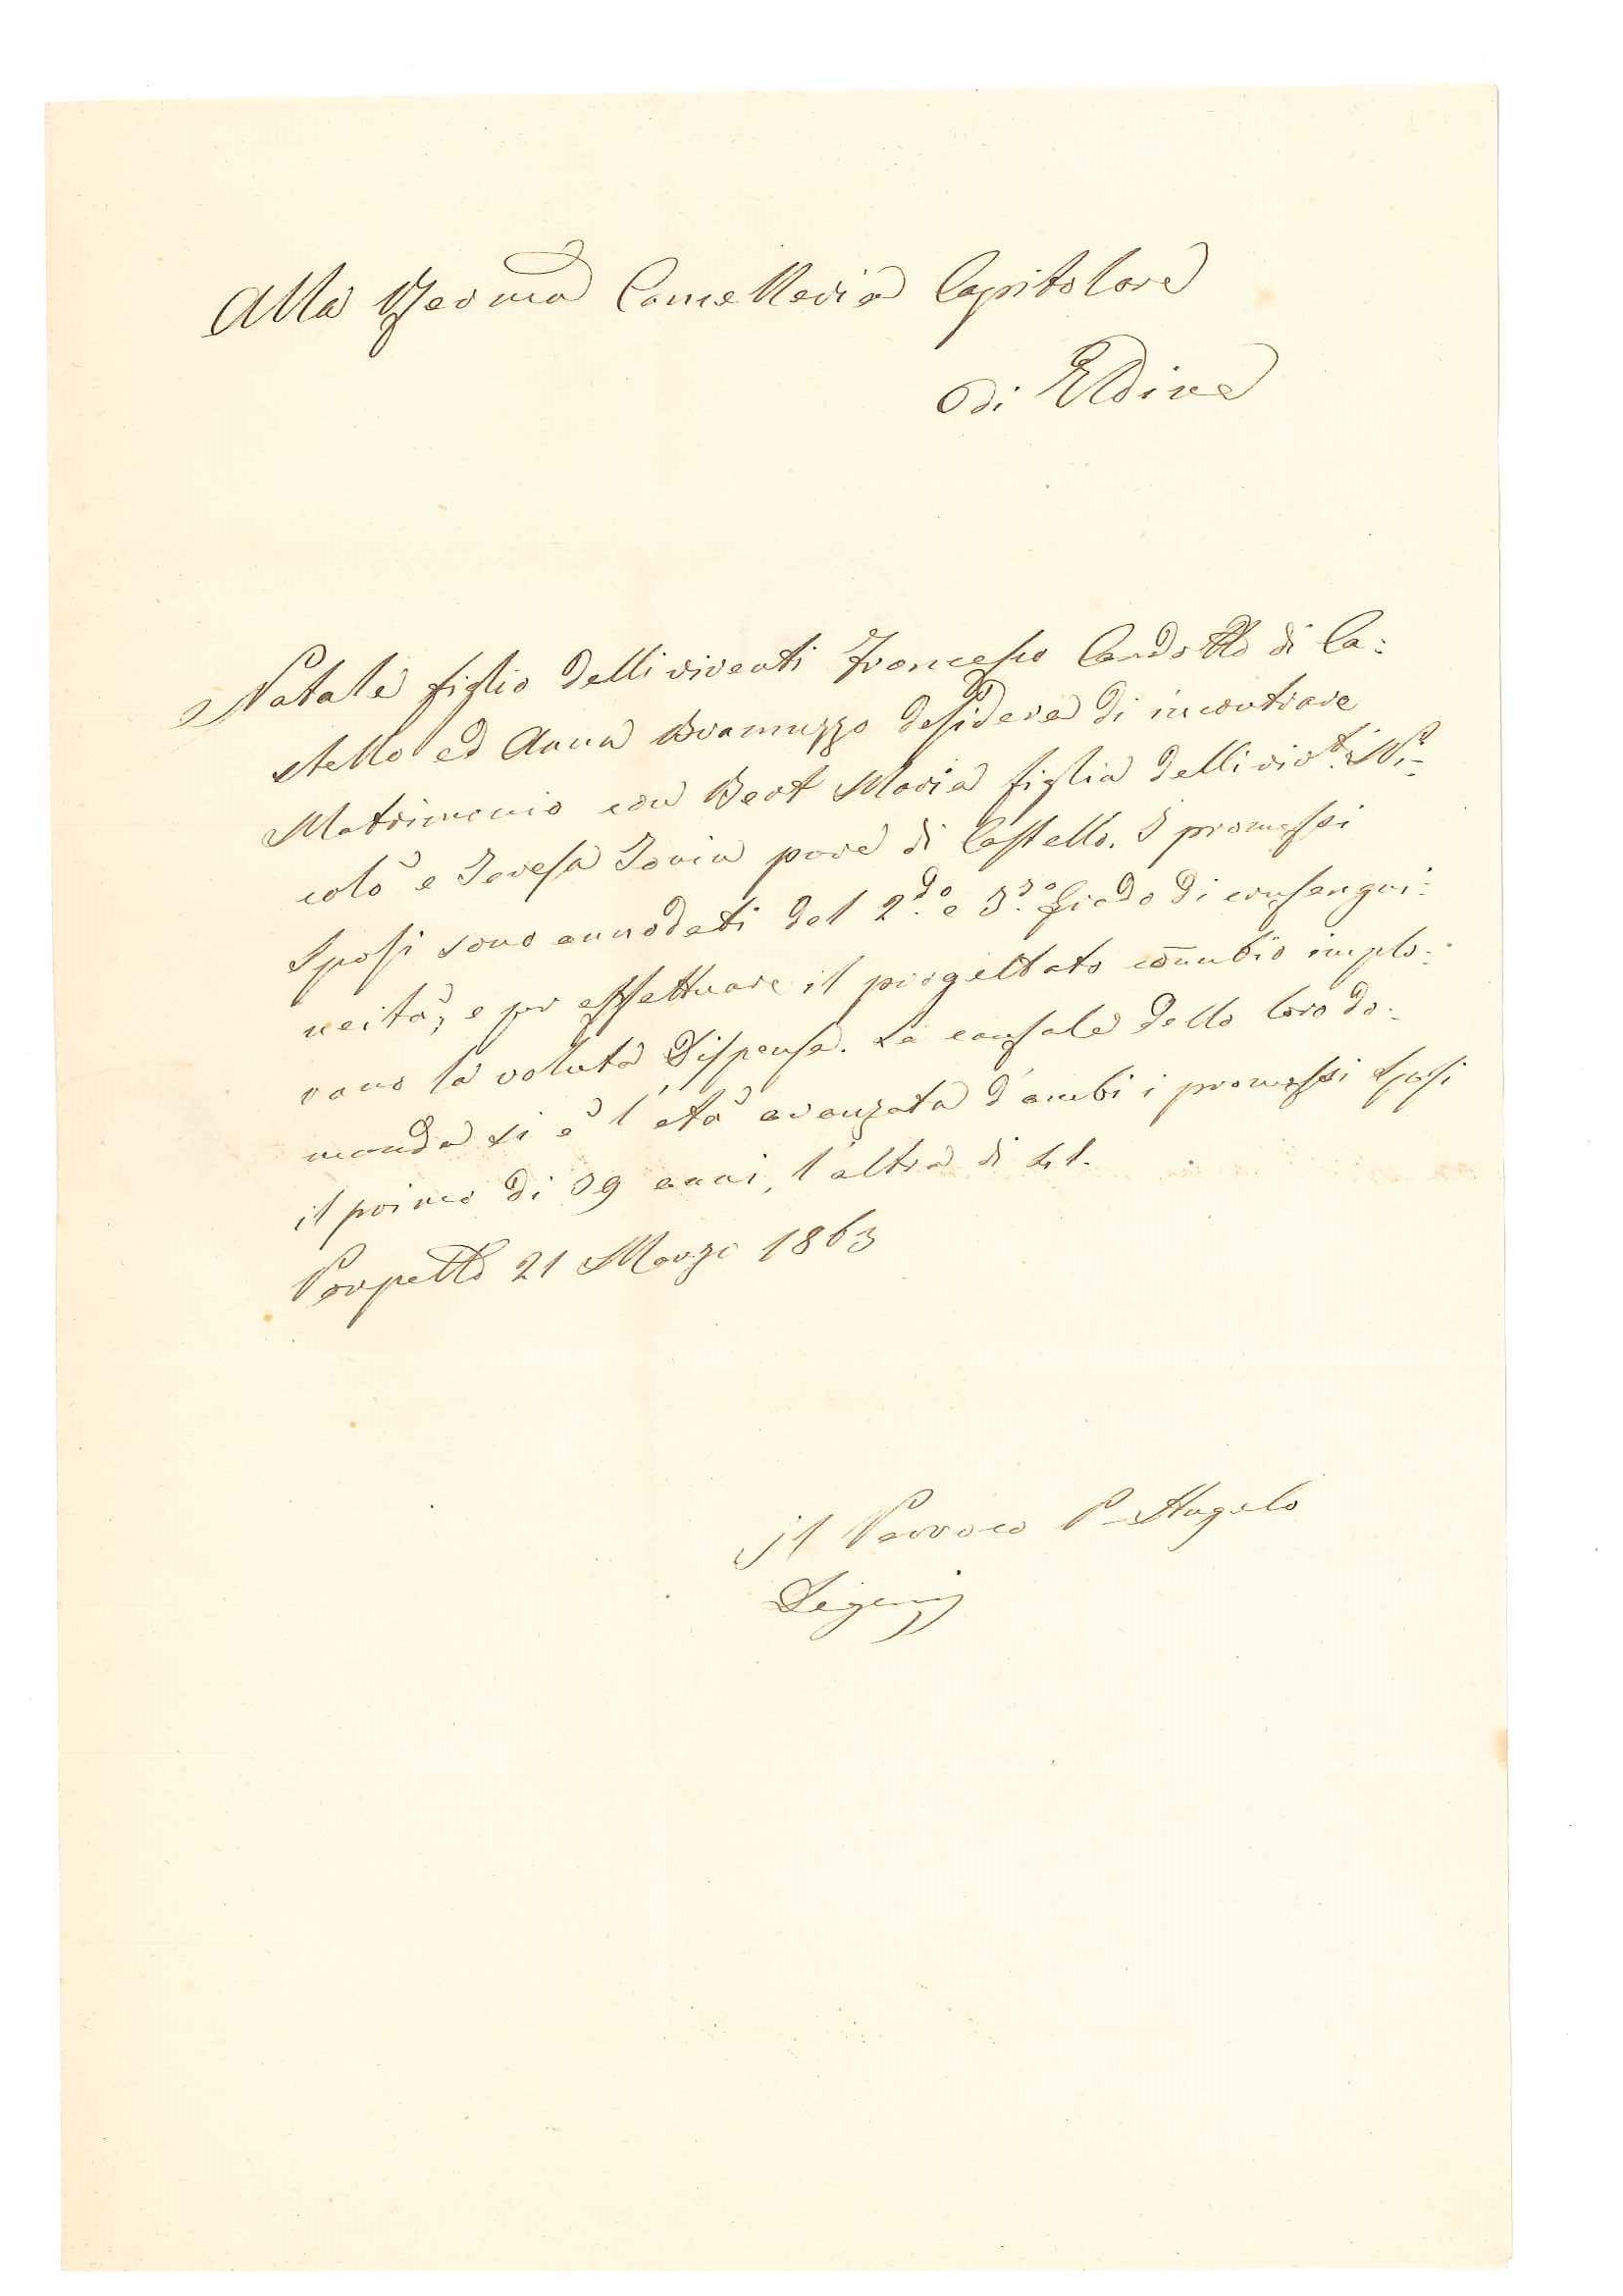 Alla Revma Cancelleria Capitolare
di Udine
Natale figlio delli viventi Francesco Candotto di Ca:
stello ed Anna Bramuzzo desidera di incontrare
Matrimonio con Bert Maria figlia delli vivti Ni=
colò e Teresa Tonin pure di Castello. I promessi
Sposi sono annodati del 2.do e 3.zo grado di consangui:
neità, e per effettuare il progettato connubio implo:
rano la voluta Dispensa. La causale della loro do:
manda si è l'età avanzata d'ambi i promessi Sposi
il primo di 39 anni, l'altra di 41.
Porpetto 21 Marzo 1863
Il Parroco P. Angelo